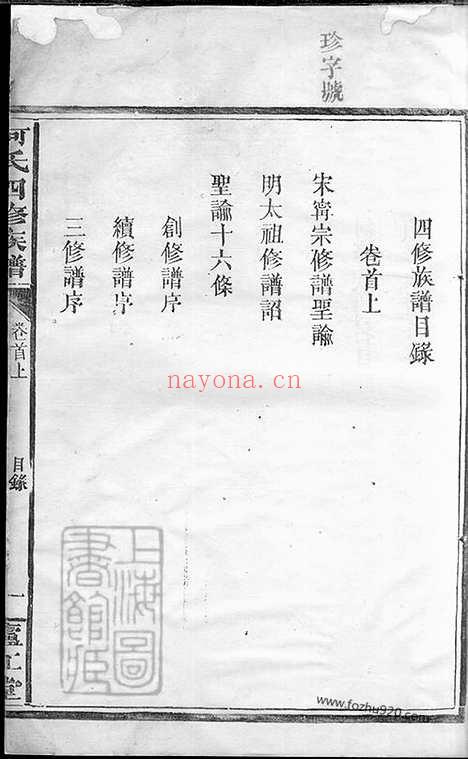 珍字號
四修族譜目錄
卷首上
宋寧宗修譜聖諭
明太祖修譜詔
聖諭十六條
創修譜序
續修譜序
三修譜序
何氏四修族譜
卷首上
目錄
一
廬江堂
上海圖書館藏
nayona.cn
www.fozhu920.com